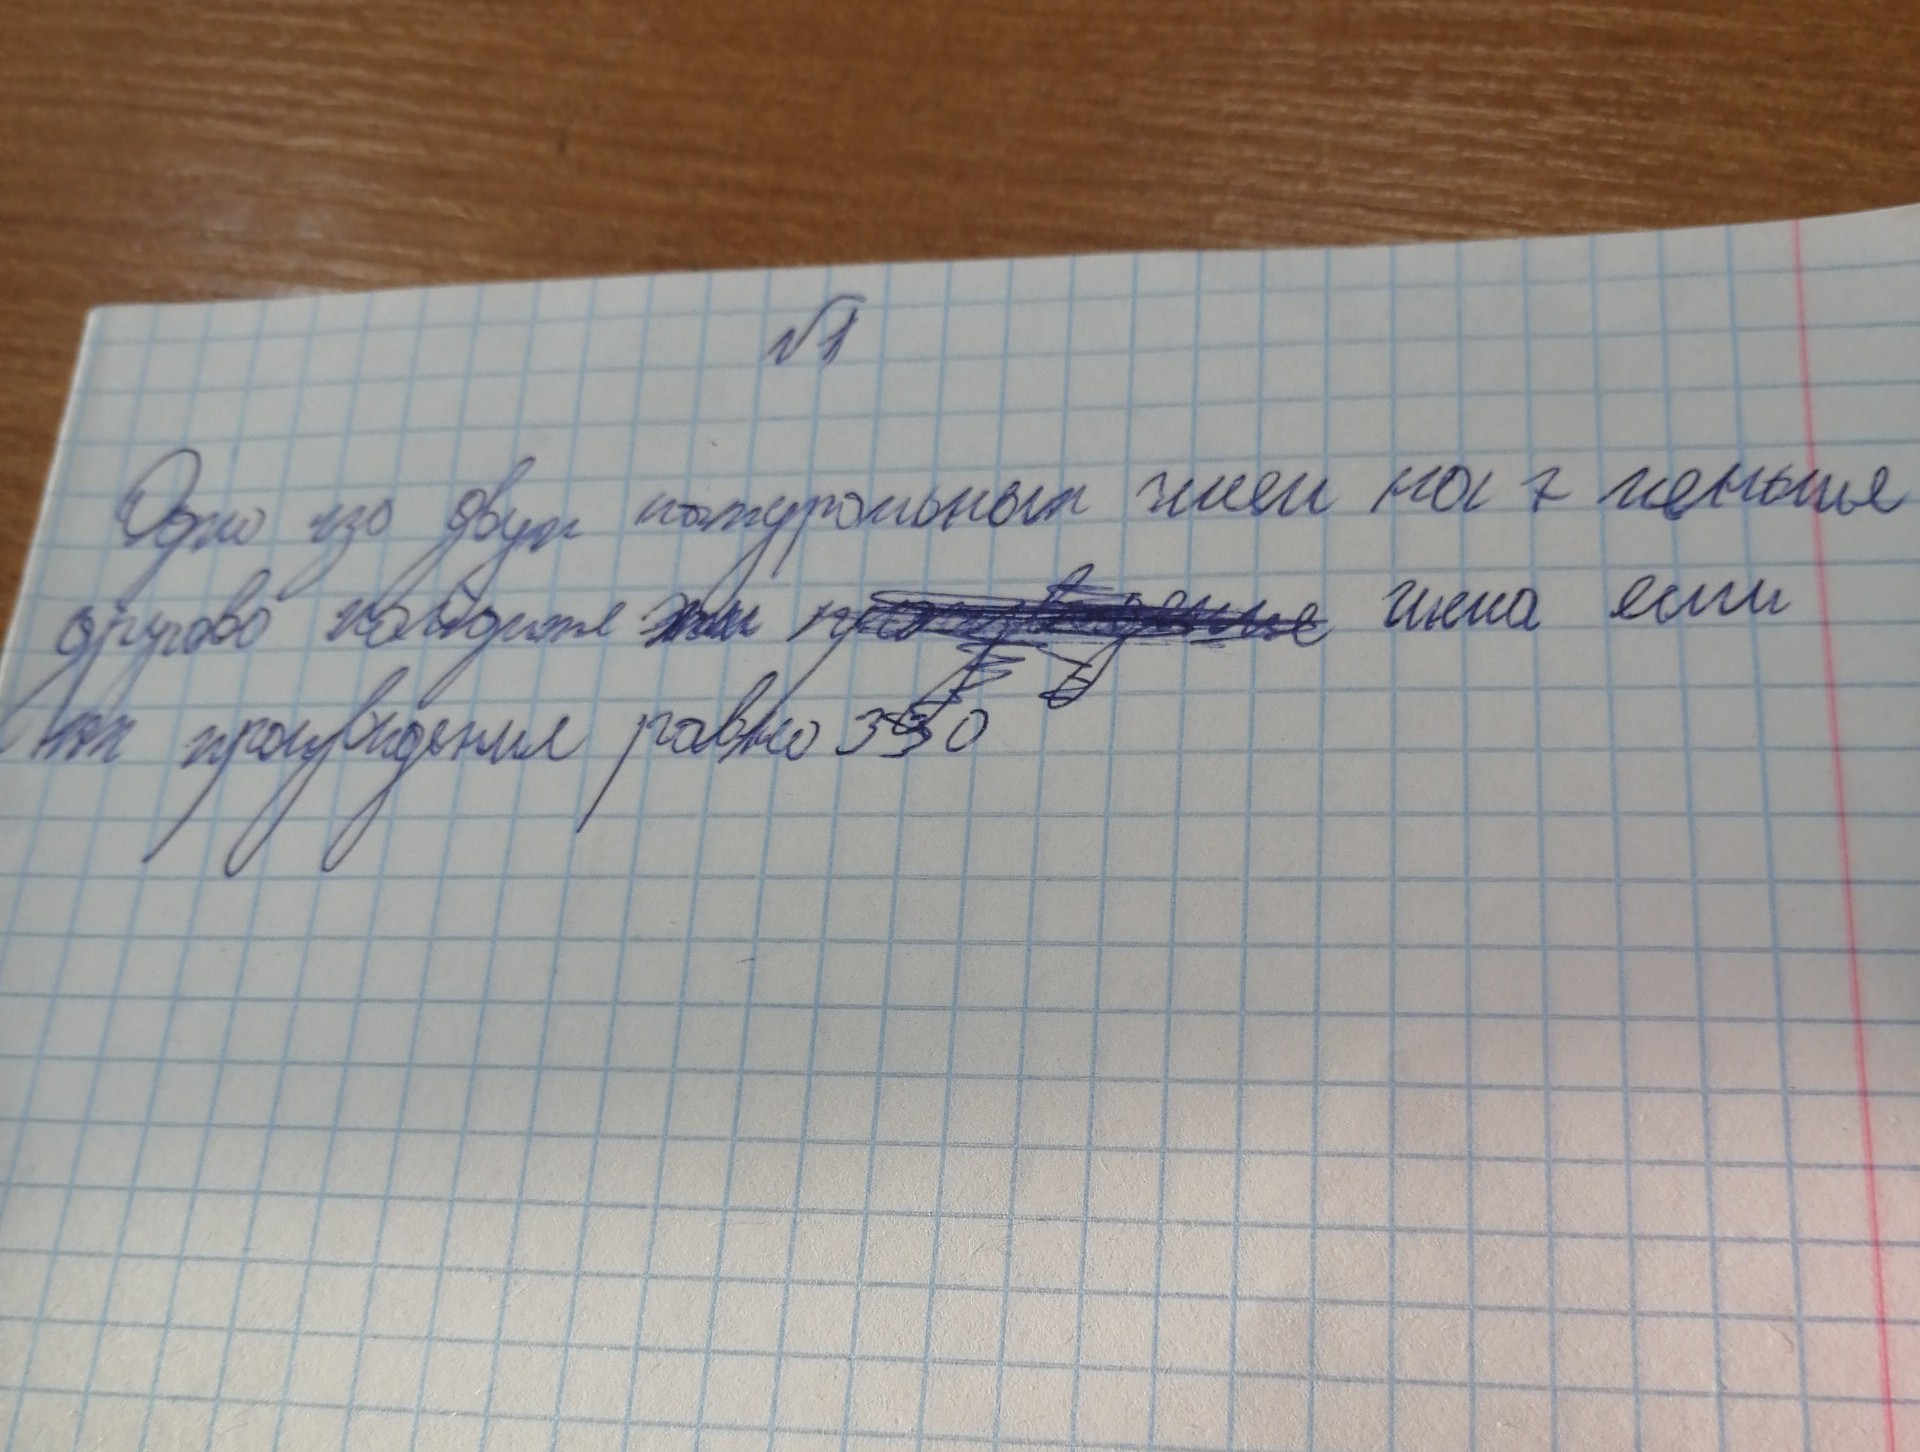 №1
Одно из двух натуральных чисел на 7 меньше
другово найдите эти числа если
их произведения равно 330